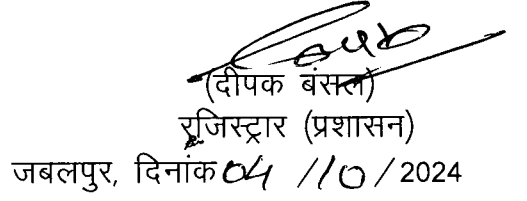 (दीपक बंसल)
रजिस्ट्रार (प्रशासन)
जबलपुर, दिनांक 04 /10/ 2024